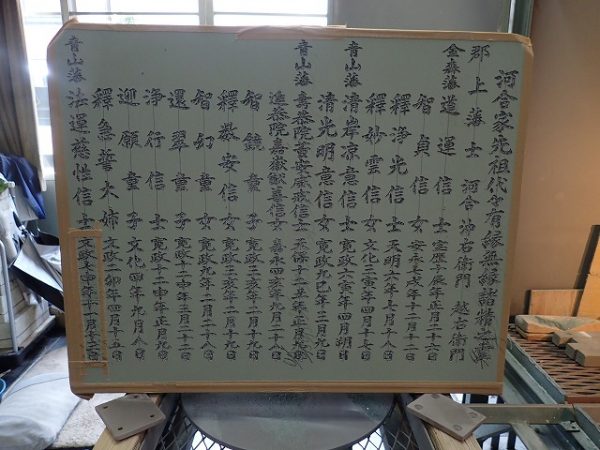 河合家先祖代々有縁無縁諸精
郡上藩士 河合 沖右衛門 越右衛門
金森藩 道運信士 宝暦十庚辰年正月二十二日
智貞信女 安永七戌年十二月二十一日
釋浄光信士 天明六年七月十八日
釋妙雲信女 文化三寅年四月十七日
青山藩 清岸凉意信士 寛政六寅年四月朔日
清光明意信女 寛政九巳年三月九日
青山藩 天保十二丑年正月
嘉永四亥年九月二十八日
智鏡童女 寛政三亥年二月九日
釋教安信女 寛政三亥年二月二十九日
智幻童女 寛政九年二月二十八日
還翠童子 寛政十二申年三月二十二日
浄行信士 寛政十二申年正月九日
迎願童子 文化四年九月八日
釋無誓大姉 文政二卯年四月十五日
青山藩 法運慈性信士 文政七申年十一月十三日